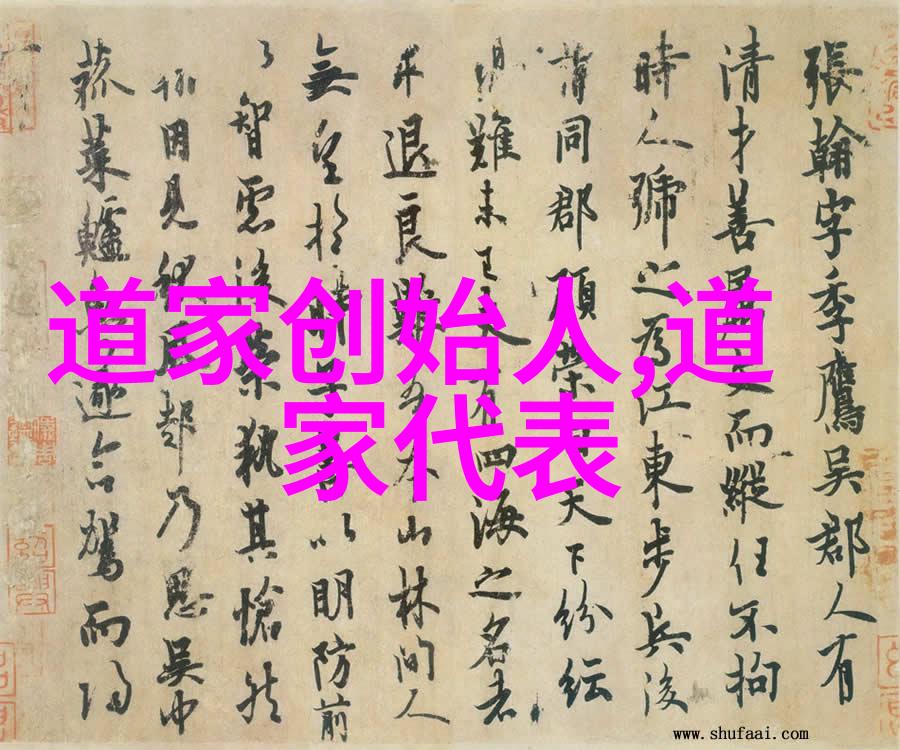 道家创始人,道
家代表
張翰字季鷹吳郡人有
清才善屬文而縱任不拘
時人號之為江東步兵後
同郡顧榮曰天下紛紜
難未已夫有四海之名者
求退良難吾本山林間人
無望於時子善以明防前
以智慮後榮執其愴然
翰因見秋風起乃思吳中
菰菜鱸魚遂命駕而歸
www.shufaai.com